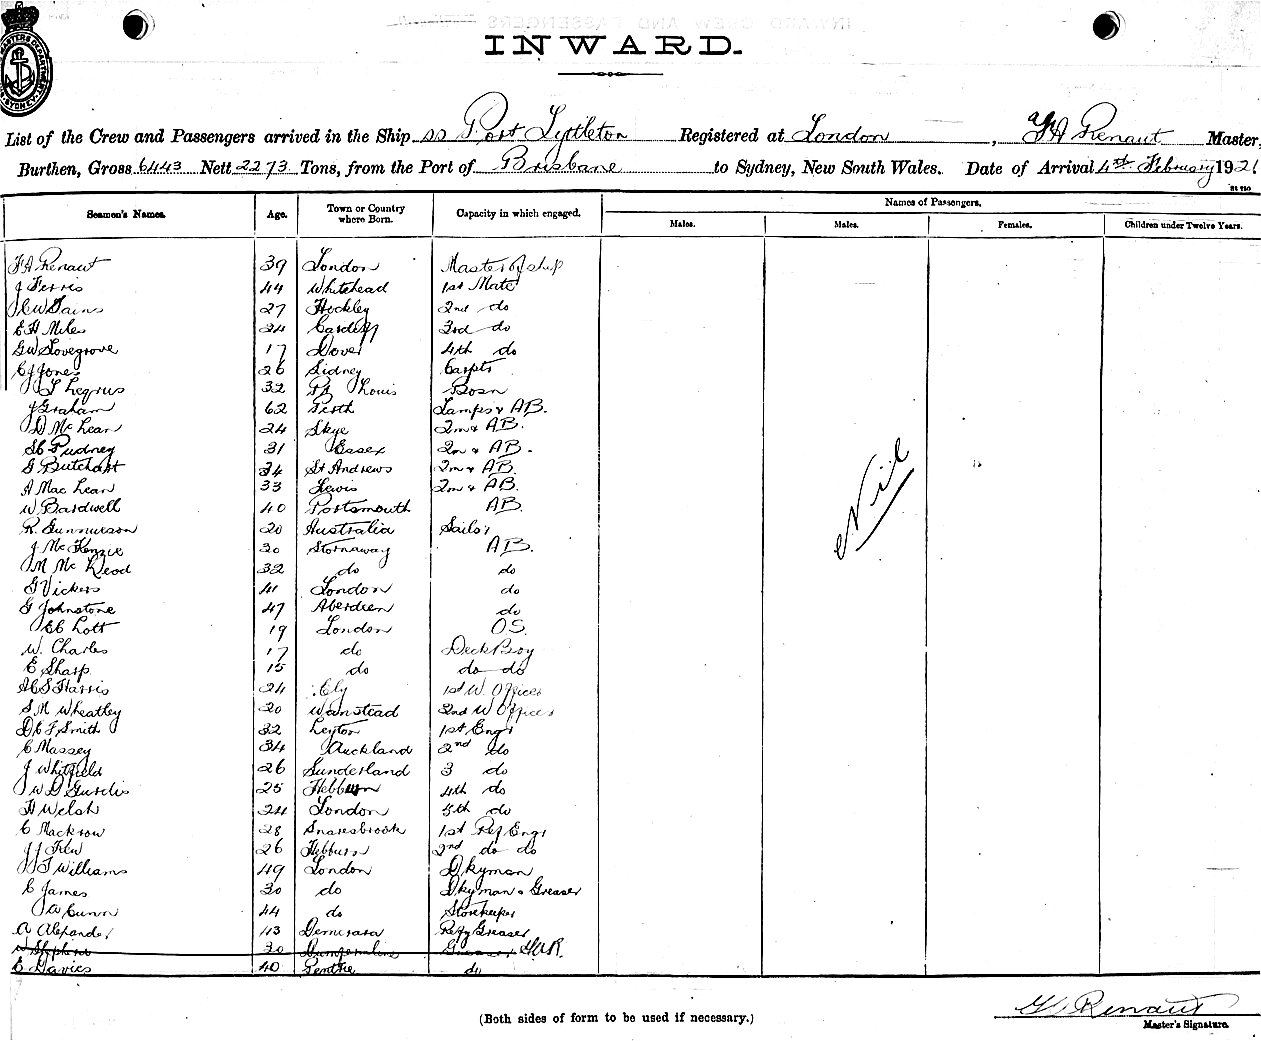 INWARD.
List of the Crew and Passengers arrived in the Ship ss Port Lyttleton Registered at London, F A Renaut Master,
Burthen, Gross 6443 Nett 2273 Tons, from the Port of Brisbane to Sydney, New South Wales. Date of Arrival 4th February 1921
Seamen's Names. Age. Town or Country where Born. Capacity in which engaged. Names of Passengers.
Males. Males. Females. Children under Twelve Years.
F A Renaut 39 London Master of ship
J Ferris 44 Whitehead 1st Mate
27 Hockley 2nd do
E H Miles 24 Cardiff 3rd do
G W Lovegrove 17 Dover 4th do
C J Jones 26 Sidney Carptr
32 Pt Louis Bosn
J Graham 62 Perth Lamps & AB.
D McLean 24 Skye 2m & AB.
Pudney 31 Essex 2m & AB.
G Butchart 34 St Andrews 2m & AB.
A MacLean 33 Lewis 2m & AB.
W. Bardwell 40 Portsmouth AB.
R. 20 Australia Sailor
J McKenzie 30 Stornaway AB.
M McLeod 32 do do
G Vickers 41 London do
G Johnstone 47 Aberdeen do
Lott 19 London OS.
W. Charles 17 do Deck Boy
E Sharp 15 do do do
Harris 24 Ely 1st W. Officer
S M Wheatley 20 Wanstead 2nd W Officer
D C F Smith 32 Leyton 1st Engr
C Massey 34 Auckland 2nd do
J Whitfield 26 Sunderland 3 do
W G 25 Hebburn 4th do
H Welsh 24 London 5th do
C Mackrow 28 Snaresbrook 1st Ref Engr
26 Hebburn 2nd do do
J T Williams 49 London Dkyman
C James 30 do Dkyman & Greaser
44 do Storekeeper
A Alexander 43 Demerara Refg Greaser
30 Dunfermline Greaser
E Davies 40 Pentre do
Nil
(Both sides of form to be used if necessary.)
F A Renaut
Master's Signature.